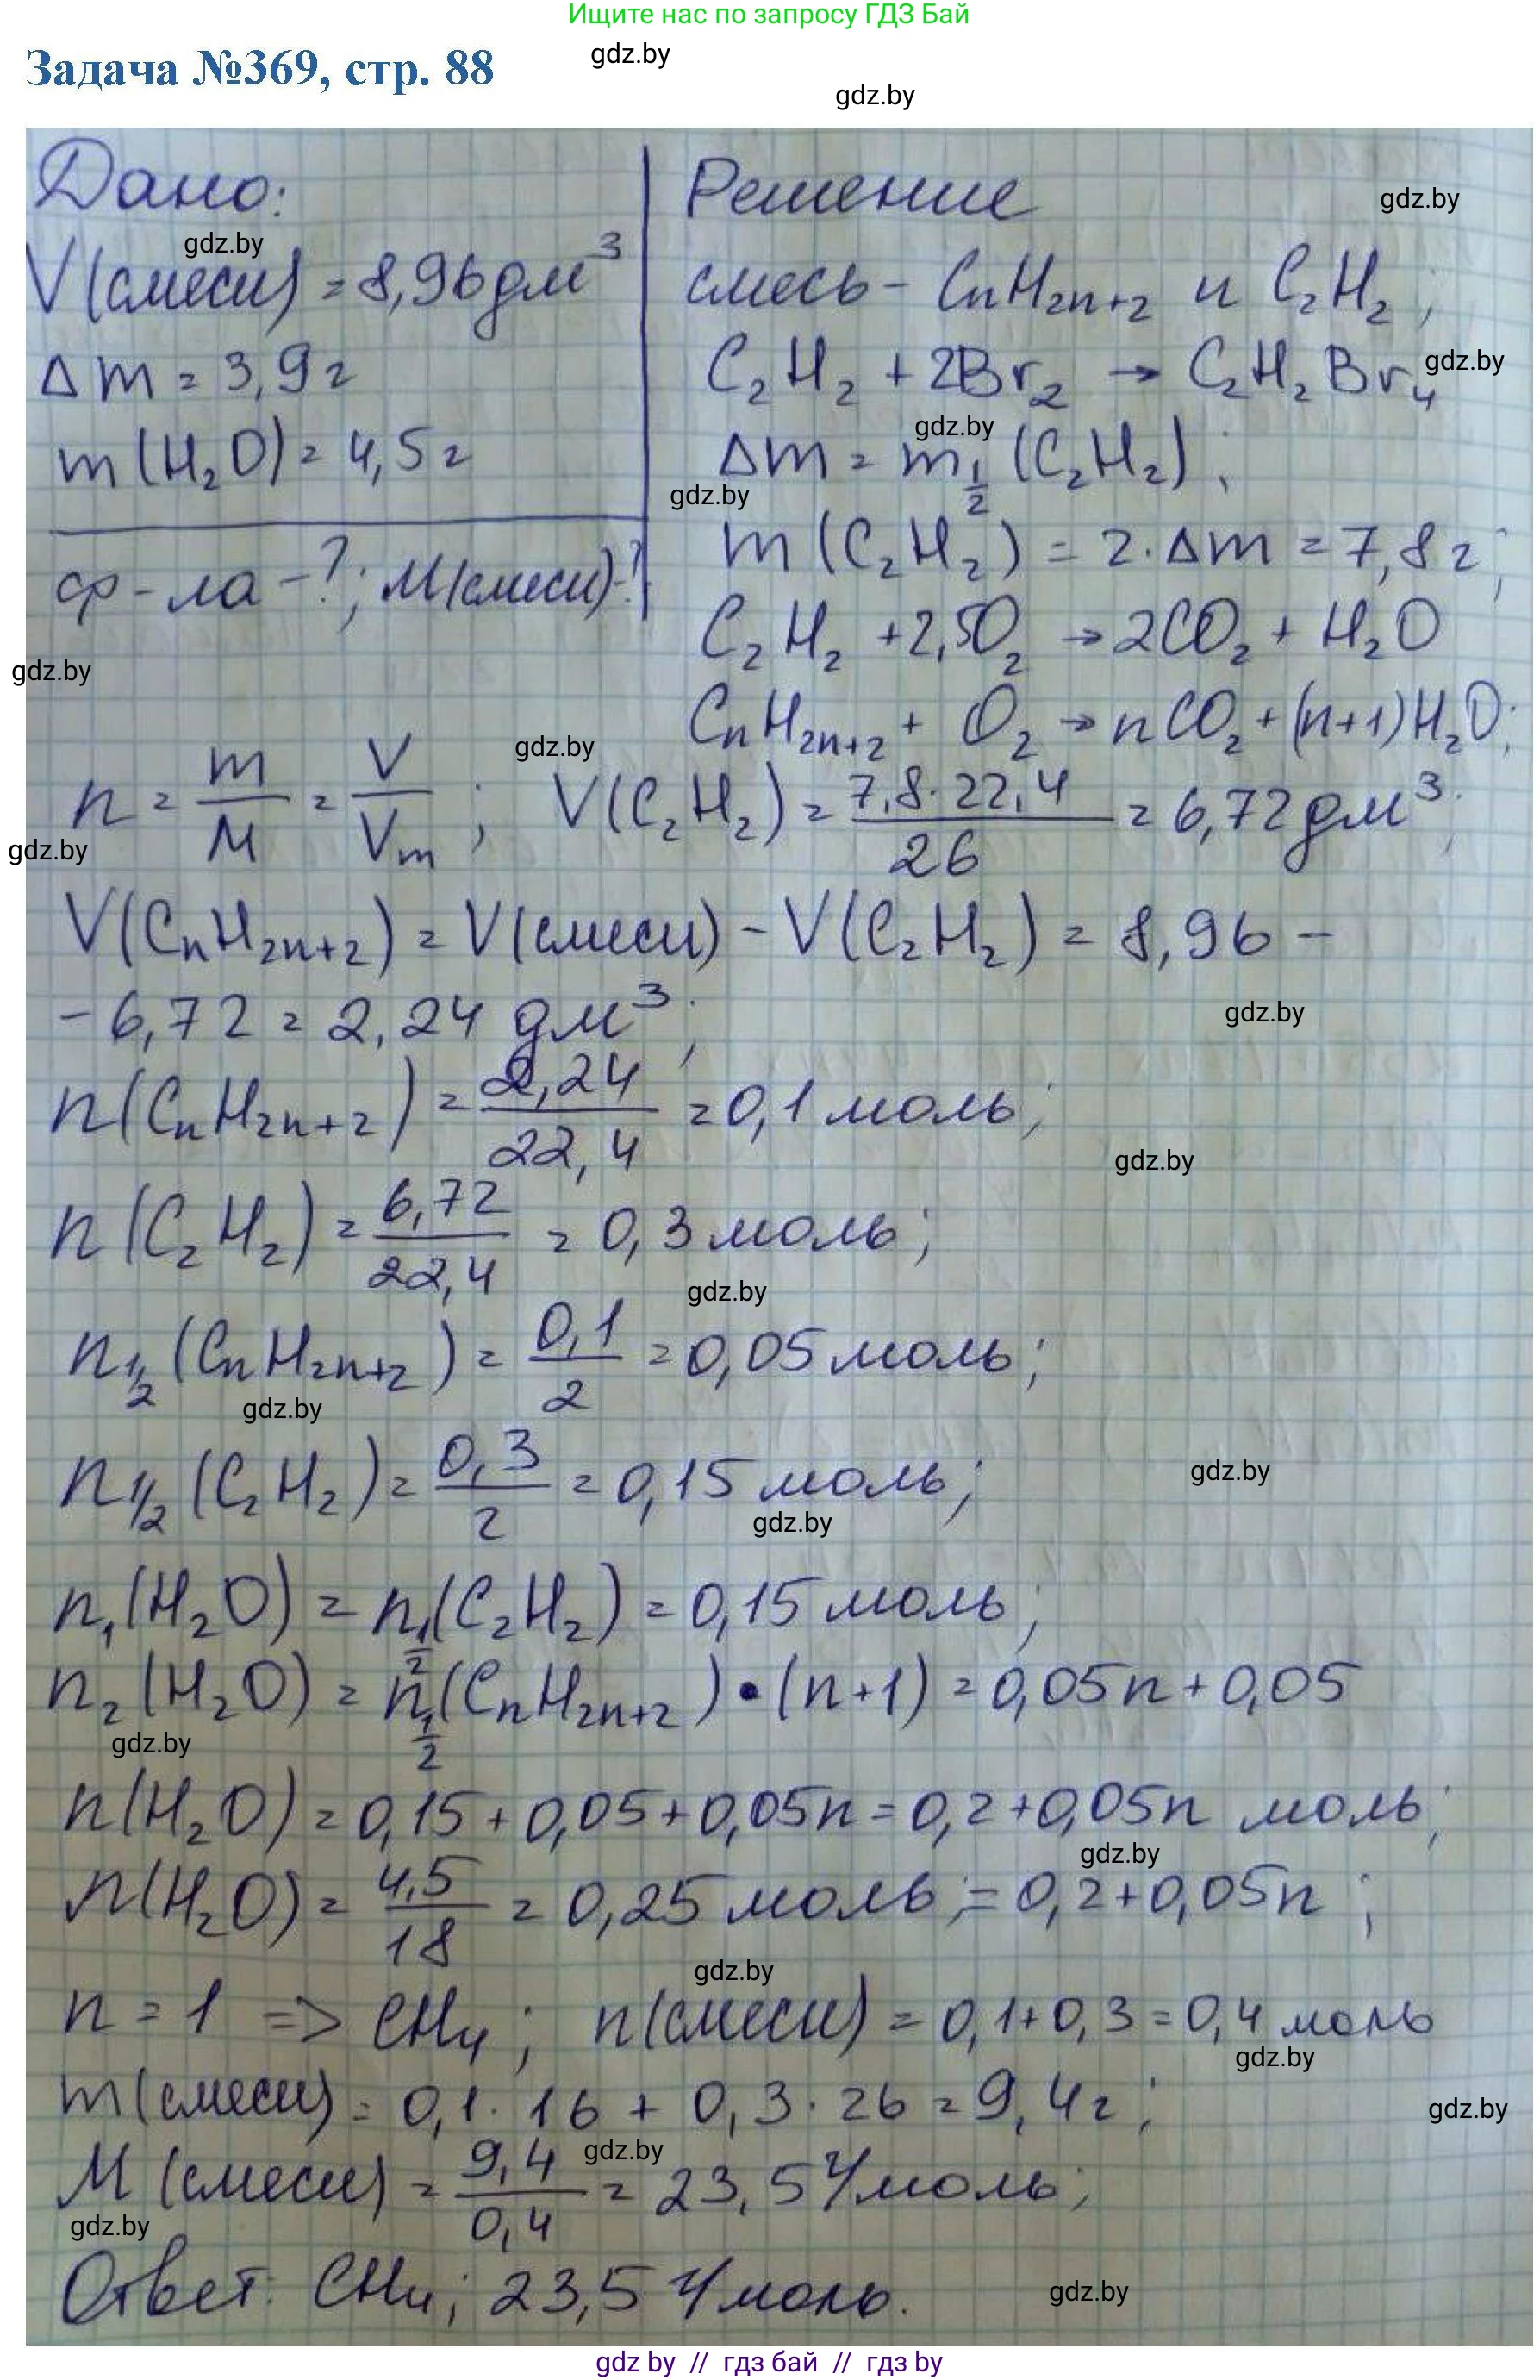 Ищите нас по запросу ГДЗ Бай
gdz.by
Задача №369, стр. 88
gdz.by
Дано:
V(смеси) = 8,96 дм³
Δm = 3,9 г
m(H₂O) = 4,5 г
ф-ла -?; M(смеси)-?
Решение
gdz.by
gdz.by
смесь - CnH2n+2 и C₂H₂;
C₂H₂ + 2Br₂ → C₂H₂Br₄
gdz.by
gdz.by
Δm = m½ (C₂H₂);
gdz.by
m(C₂H₂) = 2·Δm = 7,8 г;
C₂H₂ + 2,5O₂ → 2CO₂ + H₂O
gdz.by
CnH2n+2 + O₂ → nCO₂ + (n+1)H₂O;
gdz.by
n = m/M = V/Vm; V(C₂H₂) = 7,8·22,4/26 = 6,72 дм³;
gdz.by
V(CnH2n+2) = V(смеси) - V(C₂H₂) = 8,96 -
- 6,72 = 2,24 дм³;
gdz.by
n(CnH2n+2) = 2,24/22,4 = 0,1 моль;
gdz.by
n(C₂H₂) = 6,72/22,4 = 0,3 моль;
gdz.by
n½(CnH2n+2) = 0,1/2 = 0,05 моль;
gdz.by
n½(C₂H₂) = 0,3/2 = 0,15 моль;
gdz.by
gdz.by
n₁(H₂O) = n½(C₂H₂) = 0,15 моль;
n₂(H₂O) = n½(CnH2n+2)•(n+1) = 0,05n + 0,05
gdz.by
n(H₂O) = 0,15 + 0,05 + 0,05n = 0,2 + 0,05n моль;
gdz.by
n(H₂O) = 4,5/18 = 0,25 моль; = 0,2 + 0,05n;
gdz.by
n = 1 => CH₄; n(смеси) = 0,1 + 0,3 = 0,4 моль
gdz.by
m(смеси) = 0,1·16 + 0,3·26 = 9,4 г;
gdz.by
gdz.by
M(смеси) = 9,4/0,4 = 23,5 г/моль;
gdz.by
Ответ: CH₄; 23,5 г/моль.
gdz.by
gdz by // гдз бай // гдз by